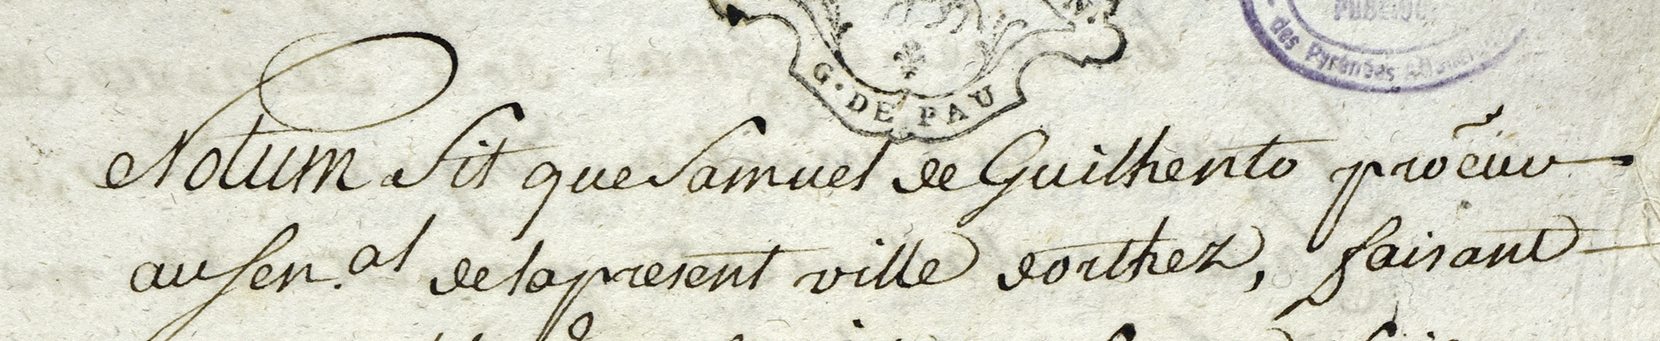 PUBLIQUE
G. DE PAU
des Pyrénées
Notum sit que Samuel de Guilhento procũur
au sen.al de la present ville dorthez, faisant